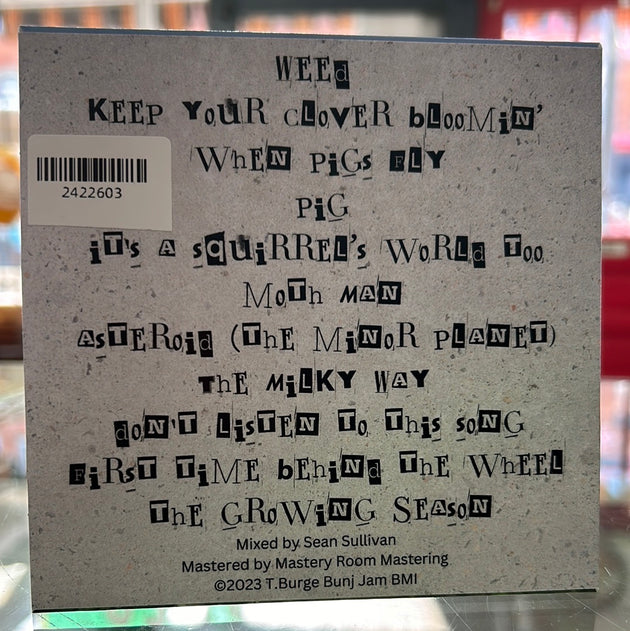 WEEd
KEEP YouR cLOVER bLooMiN'
2422603
WhEN PiGs FLY
PiG
iT's A sQUiRREL's WORLd Too
MoTh MAN
AsTERoid (ThE MiNoR PLANET)
ThE MiLKY WAY
doN'T LisTEN To This soNG
FiRsT TiME bEhiNd ThE WhEEL
ThE GRoWiNG SEAsoN
Mixed by Sean Sullivan
Mastered by Mastery Room Mastering
©2023 T.Burge Bunj Jam BMI